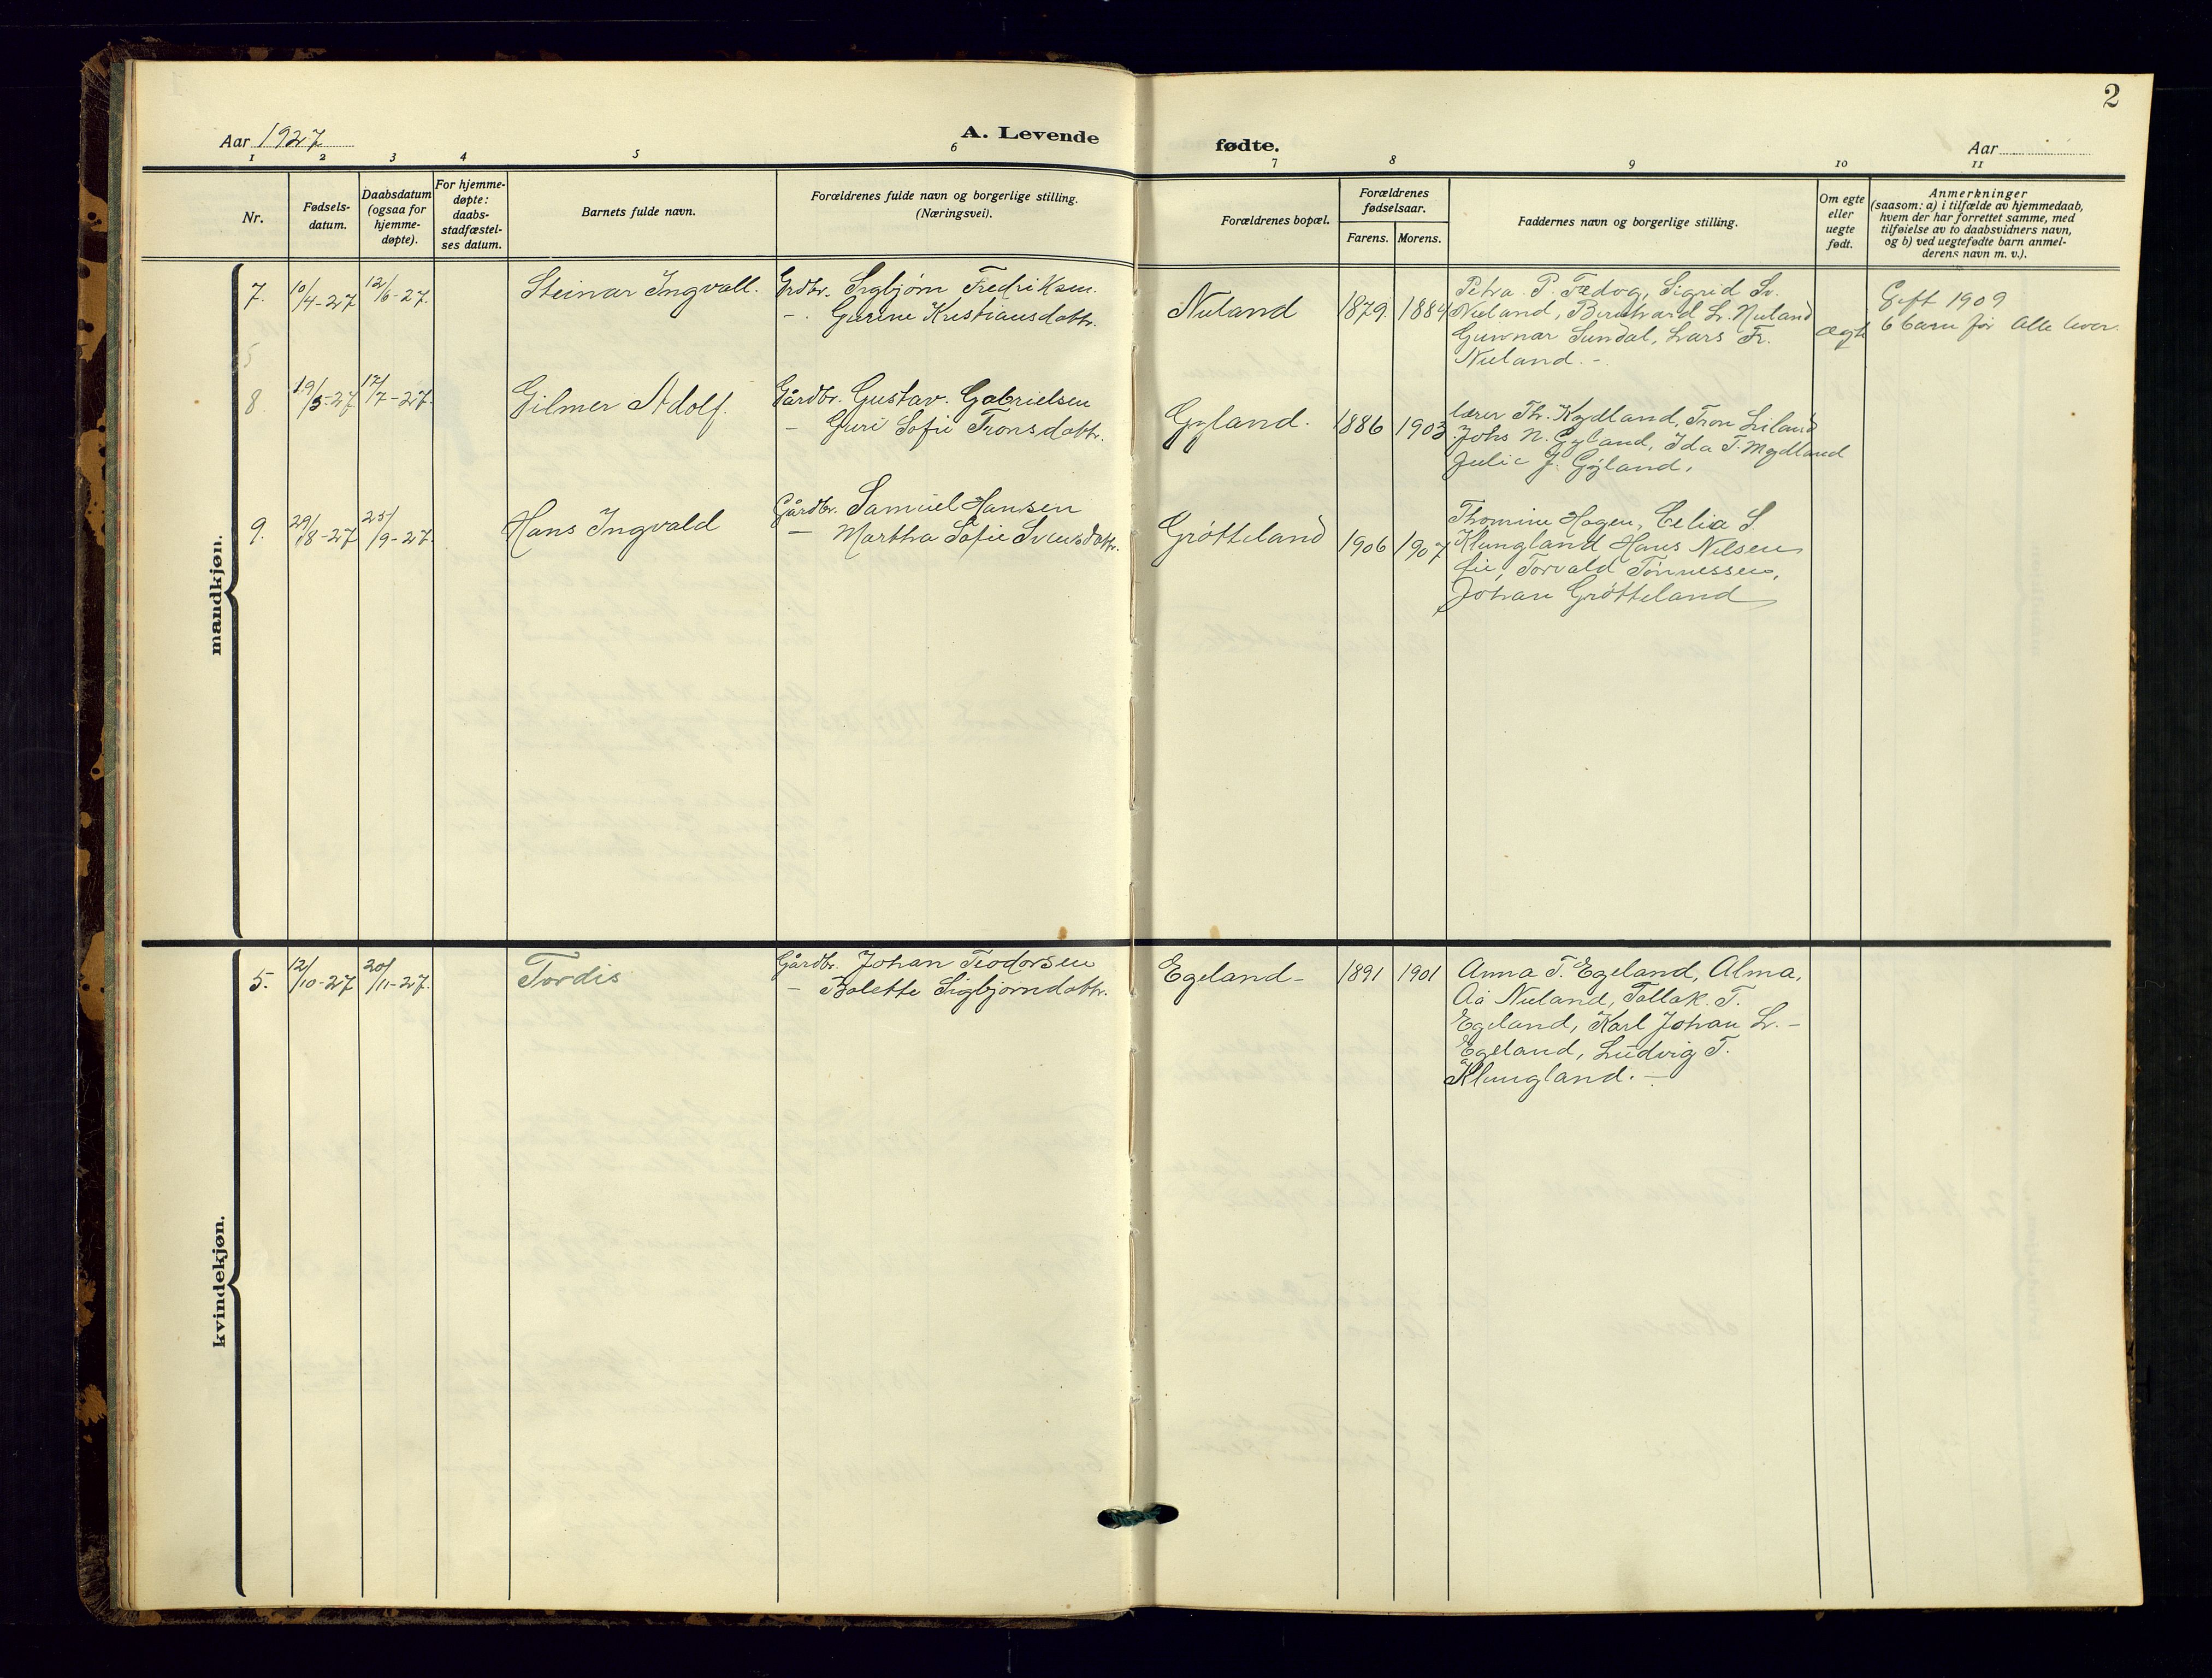 2
Aar 1927
A. Levende
fødte.
Aar
1 2 3 4 5 6 7 8 9 10 11
Nr.
Fødsels-
datum.
Daabsdatum
(ogsaa for
hjemme-
døpte).
For hjemme-
døpte:
daabs-
stadfæstel-
ses datum.
Barnets fulde navn.
Forældrenes fulde navn og borgerlige stilling.
(Næringsvei).
Forældrenes bopæl.
Forældrenes
fødselsaar.
Farens. Morens.
Faddernes navn og borgerlige stilling.
Om egte
eller
uegte
født.
Anmerkninger
(saasom: a) i tilfælde av hjemmedaab,
hvem der har forrettet samme, med
tilføielse av to daabsvidners navn,
og b) ved uegtefødte barn anmel-
derens navn m. v.).
mandkjøn.
7. 10/4-27 12/6-27. Steinar Ingvall. Grdbr. Sigbjørn Fredriksen.
- Gurine Kristiansdattr.
Nuland 1879. 1884
Petra P. Fedog, Sigrid Sv.
Nuland, Bernhard L. Nuland
Gunnar Sundal, Lars Fr.
Nuland. -
ægte
Gift 1909
6 barn før alle lever.
8. 19/5-27. 17/7-27. Gilmer Adolf. Gårdbr. Gustav. Gabrielsen
- Guri Sofie Tronsdattr.
Gyland. 1886 1903
lærer Th. Kydland, Tron Liland
Johs N. Gyland, Ida T. Mydland
Julie J. Gyland.
9. 29/8-27 25/9-27. Hans Ingvald Gårdbr. Samuel Hansen
- Martha Sofie Svensdattr.
Grøtteland 1906 1907
Thomine Hagen, Celia S.
Klungland Hans Nilsen
Lie, Torvald Tønnessen,
Johan Grøtteland
kvindekjøn.
5. 12/10-27 20/11-27. Tordis Gårdbr. Johan Teodorsen
- Bolette Sigbjørndattr.
Egeland - 1891 1901
Anna T. Egeland, Alma,
Aå Nuland, Tallak. T.
Egeland, Karl Johan L. -
Egeland, Ludvig T.
Klungland. -